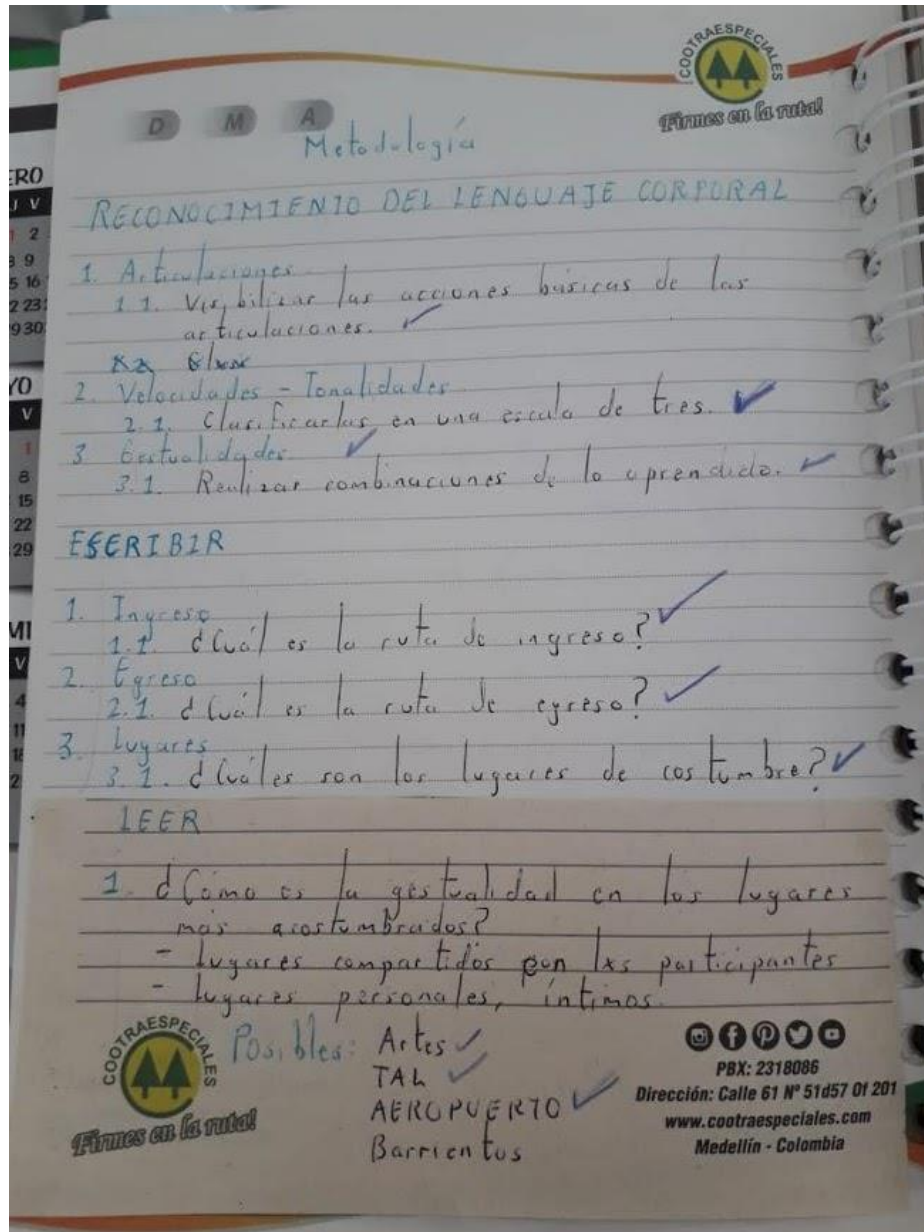 COOTRAESPECIALES
Firmes en la ruta!
D M A
Metodología
RECONOCIMIENTO DEL LENGUAJE CORPORAL
1. Articulaciones
1.1. Visibilizar las acciones básicas de las
articulaciones.
2. Velocidades - Tonalidades
2.1. Clasificarlas en una escala de tres.
3 Gestualidades
3.1. Realizar combinaciones de lo aprendido.
ESCRIBIR
1. Ingreso
1.1. ¿Cuál es la ruta de ingreso?
2. Egreso
2.1. ¿Cuál es la ruta de egreso?
3. Lugares
3.1. ¿Cuáles son los lugares de costumbre?
LEER
1. ¿Cómo es la gestualidad en los lugares
más acostumbrados?
- Lugares compartidos con lxs participantes
- Lugares personales, íntimos.
Posibles: Artes
TAL
AEROPUERTO
Barrientos
COOTRAESPECIALES
Firmes en la ruta!
PBX: 2318086
Dirección: Calle 61 Nº 51d57 Of 201
www.cootraespeciales.com
Medellín - Colombia